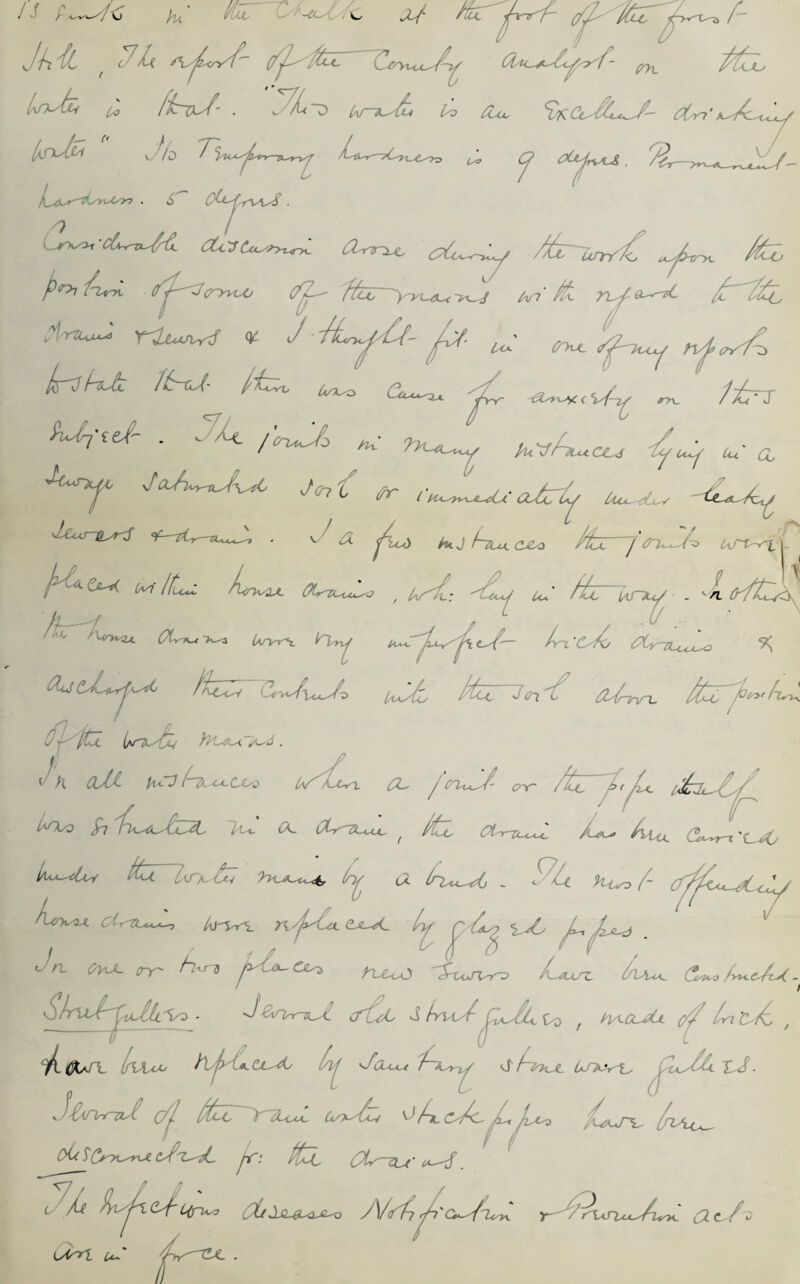 is sunk in the Chalk at the foot of the
Hill, The report of the County Analyst on the
water is that. "This water is an Excellent drinking
water" Its Temporary hardness is 9 degrees. Permanent
hardness. 5 degrees.
Considerable discussion arose during the work upon the
position of some of the mains with regard to the
drains & sewers & I thought fit in one of my reports
to state that there was cause for anxiety on this
subject. The joints in many instances lying in a
sewage saturated soil or immediately under leaky
sewers & drains. In a few instances the joints were
placed within house drains, wh: lay in the way. In others
the house drains were very imperfect brick drains &
discharged their contents into the soil above the position
of the water mains.
In all instances when a joint or the pipe itself
was situated in a drain, the drain has been carried
under the water main by a bend. The most offending
house drains were replaced by glazed pipes.
In one or two places new Sewers have been constructed.
Street gullies. Several old street gullies, made of brick,
have been replaced by Sanitary stone ware gullies.
Several of the rain water stack pipes have been
disconnected fr: the drains.
The Infectious diseases Notification & Prevention acts
are in force.